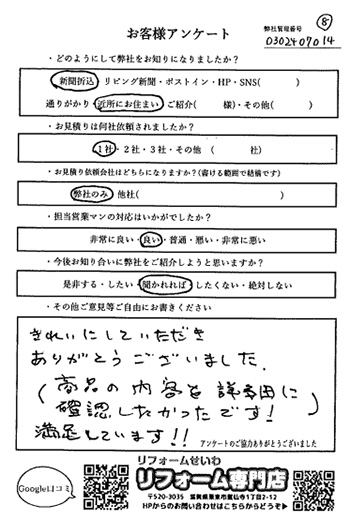 ⑧
お客様アンケート
弊社管理番号
0302407014
・どのようにして弊社をお知りになりましたか？
新聞折込 リビング新聞・ポストイン・HP・SNS( )
通りがかり・近所にお住まい・ご紹介( 様)・その他( )
・お見積りは何社依頼されましたか？
1社・2社・3社・その他 ( 社)
・お見積り依頼会社はどちらになりますか？(書ける範囲で結構です)
弊社のみ・他社( )
・担当営業マンの対応はいかがでしたか？
非常に良い・良い・普通・悪い・非常に悪い
・今後お知り合いに弊社をご紹介しようと思いますか？
是非する・したい・聞かれれば・したくない・絶対しない
・その他ご意見等ご自由にお書きください
きれいにしていただき
ありがとうございました.
(商品の内容を詳細に
確認したかったです!)
満足しています!!
アンケートのご協力ありがとうございました
リフォームせいわ
Google口コミ
リフォーム専門店
〒520-3035 滋賀県栗東市霊仙寺1丁目2-12
HPからのお問い合わせはこちらからどうぞ